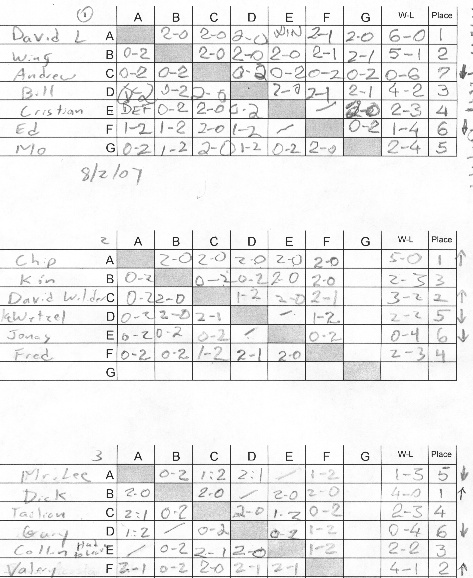 ① A B C D E F G W-L Place
David L A 2-0 2-0 2-0 WIN 2-1 2-0 6-0 1
Wing B 0-2 2-0 2-0 2-0 2-1 2-1 5-1 2
Andrew C 0-2 0-2 0-2 0-2 0-2 0-2 0-6 7 ↓
Bill D 0-2 0-2 2-0 2-0 2-1 2-1 4-2 3
Cristian E DEF 0-2 2-0 0-2 / 2-0 2-3 4
Ed F 1-2 1-2 2-0 1-2 / 0-2 1-4 6 ↓
Mo G 0-2 1-2 2-0 1-2 0-2 2-0 2-4 5
8/2/07
2 A B C D E F G W-L Place
Chip A 2-0 2-0 2-0 2-0 2-0 5-0 1 ↑
Kin B 0-2 0-2 0-2 2-0 2-0 2-3 3
David Wilder C 0-2 2-0 1-2 2-0 2-1 3-2 2 ↑
D 0-2 2-0 2-1 / 1-2 2-2 5 ↓
Jonay E 0-2 0-2 0-2 / 0-2 0-4 6 ↓
Fred F 0-2 0-2 1-2 2-1 2-0 2-3 4
G
3 A B C D E F G W-L Place
Mr. Lee A 0-2 1:2 2:1 / 1-2 1-3 5 ↓
Dick B 2-0 2-0 / 2-0 2-0 4-0 1 ↑
C 2:1 0-2 2-0 1-2 0-2 2-3 4
Gary D 1:2 / 0-2 0-2 1-2 0-4 6 ↓
Collin E / 0-2 2-1 2-0 1-2 2-2 3
Valery F 2-1 0-2 2-0 2-1 2-1 4-1 2 ↑